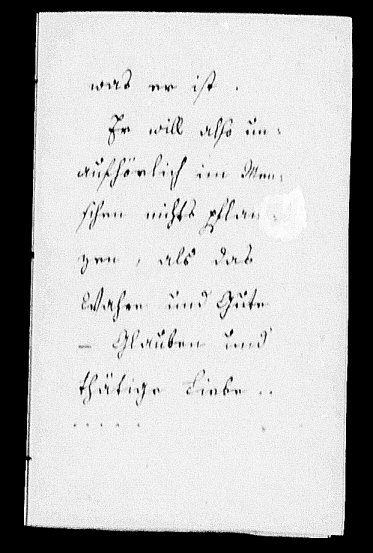 was er ist .
Er will also un-
aufhörlich im Men-
schen nichts pflan
zen , als das
Wahre und Gute
– Glauben und
thätige Liebe ..
.....